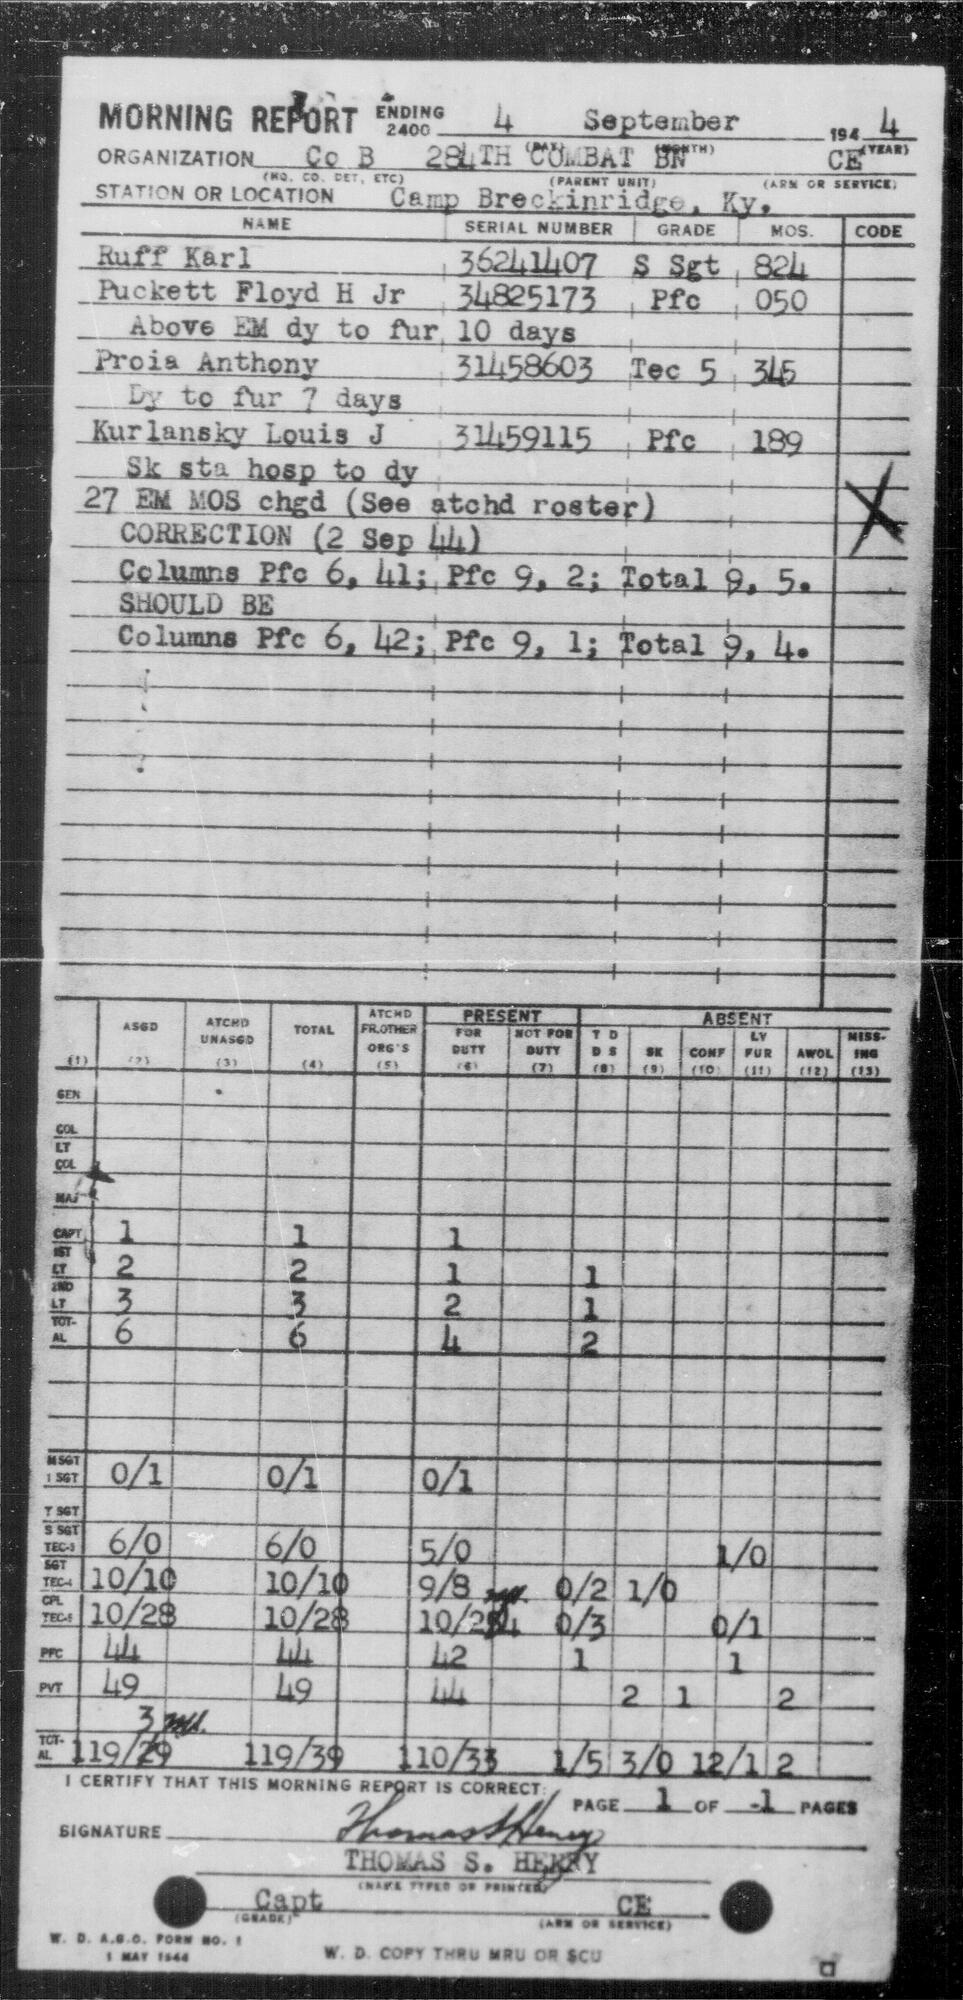 MORNING REPORT ENDING 2400 4 September 1944
(DAY) (MONTH) (YEAR)
ORGANIZATION Co B 284TH COMBAT BN CE
(HQ. CO. DET, ETC) (PARENT UNIT) (ARM OR SERVICE)
STATION OR LOCATION Camp Breckinridge, Ky.
NAME SERIAL NUMBER GRADE MOS. CODE
Ruff Karl 36241407 S Sgt 824
Puckett Floyd H Jr 34825173 Pfc 050
Above EM dy to fur 10 days
Proia Anthony 31458603 Tec 5 345
Dy to fur 7 days
Kurlansky Louis J 31459115 Pfc 189
Sk sta hosp to dy
27 EM MOS chgd (See atchd roster) X
CORRECTION (2 Sep 44)
Columns Pfc 6, 41; Pfc 9, 2; Total 9, 5.
SHOULD BE
Columns Pfc 6, 42; Pfc 9, 1; Total 9, 4.
ATCHD PRESENT ABSENT
ASGD ATCHD UNASGD TOTAL FR.OTHER ORG'S FOR DUTY NOT FOR DUTY T D D S SK CONF LV FUR AWOL MISS- ING
(1) (2) (3) (4) (5) (6) (7) (8) (9) (10) (11) (12) (13)
GEN
COL
LT
COL
MAJ
CAPT 1 1 1
1ST
LT 2 2 1 1
2ND
LT 3 3 2 1
TOT-
AL 6 6 4 2
M SGT
1 SGT 0/1 0/1 0/1
T SGT
S SGT
TEC-3 6/0 6/0 5/0 1/0
SGT
TEC-4 10/10 10/10 9/8 0/2 1/0
CPL
TEC-5 10/28 10/28 10/24 0/3 0/1
PFC 44 44 42 1 1
PVT 49 49 44 2 1 2
3
TOT-
AL 119/29 119/39 110/33 1/5 3/0 1 2/1 2
I CERTIFY THAT THIS MORNING REPORT IS CORRECT:
PAGE 1 OF 1 PAGES
SIGNATURE Thomas S Henry
THOMAS S. HENRY
(NAME TYPED OR PRINTED)
Capt CE
(GRADE) (ARM OR SERVICE)
W. D. A.G.O. FORM NO. 1
1 MAY 1944
W. D. COPY THRU MRU OR SCU